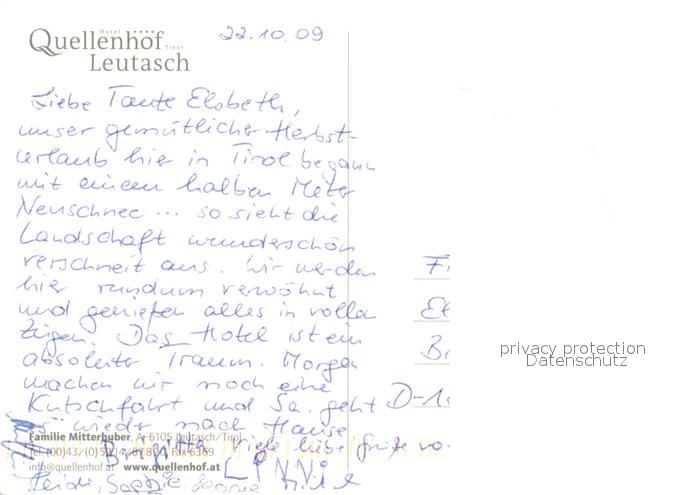 Hotel ****
Quellenhof
Tirol
Leutasch
22.10.09
Liebe Tante Elsbeth,
unser gemütlicher Herbst-
urlaub hier in Tirol begann
mit einem halben Meter
Neuschnee ... so sieht die
Landschaft wunderschön
verschneit aus. Wir werden
hier rundum verwöhnt
und genießen alles in vollen
Zügen. Das Hotel ist ein
absoluter Traum. Morgen
machen wir noch eine
Kutschfahrt und Sa. geht
es wieder nach Hause
Familie Mitterhuber, A-6105 Leutasch/Tirol
Brigitta Viele liebe Grüße vo.
info@quellenhof.at www.quellenhof.at
LINNI
Heidi, Sophie
Fr
El
Br
D-1
privacy protection
Datenschutz